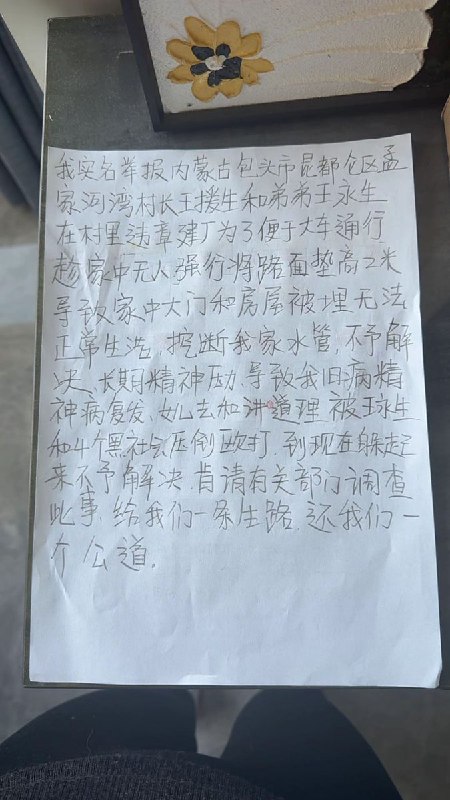 我实名举报内蒙古包头市昆都仑区孟
家河湾村长王援生和弟弟王永生
在村里违章建厂为了便于大车通行
趁家中无人强行将路面垫高2米
导致家中大门和房屋被埋无法
正常生活、挖断我家水管,不予解
决、长期精神压力、导致我旧病精
神病复发、女儿去和讲道理被王永生
和4个黑社会压倒欧打,到现在躲起
来不予解决,肯请有关部门调查
此事、给我们一条生路,还我们一
个公道。